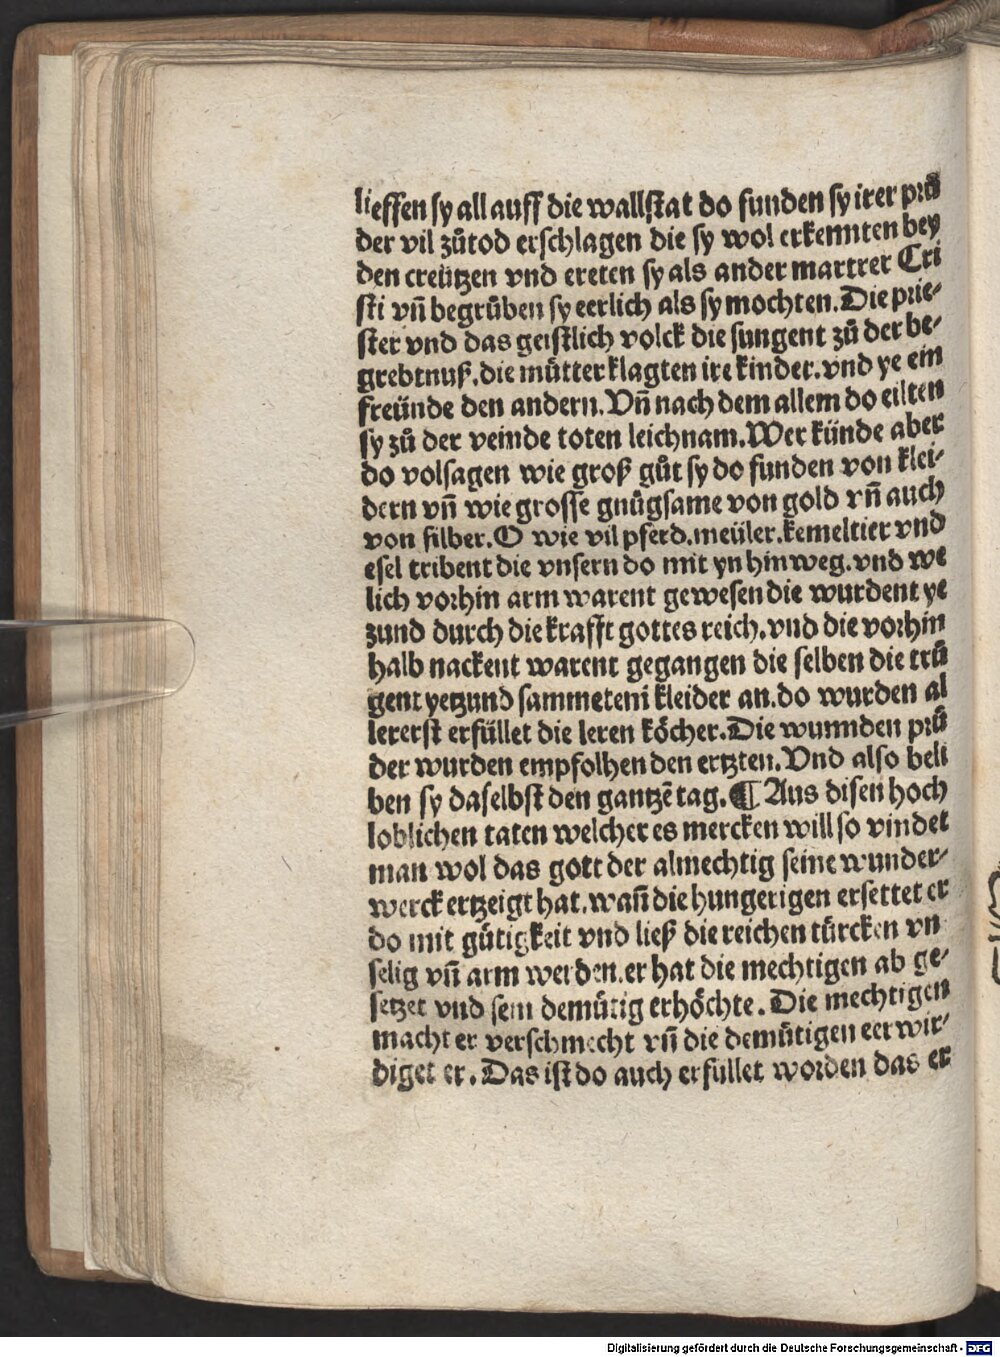 lieffen sy all auff die wallstat do funden sy irer prů
der vil zůtod erschlagen die sy wol erkennten bey
den creützen vnd ereten sy als ander martrer Cri
sti vñ begrůben sy eerlich als sy mochten. Die prie⸗
ster vnd das geistlich volck die sungent zů der be⸗
grebtnuß. die můtter klagten ire kinder. vnd ye ein
freünde den andern. Vñ nach dem allem do eilten
sy zů der veinde toten leichnam. Wer künde aber
do volsagen wie groß gůt sy do funden von klei⸗
dern vñ wie grosse gnůgsame von gold vñ auch
von silber. O wie vil pferd. meüler. kemeltier vnd
esel tribent die vnsern do mit yn hinweg. vnd we
lich vorhin arm warent gewesen die wurdent ye
zund durch die krafft gottes reich. vnd die vorhin
halb nackent warent gegangen die selben die trů
gent yetzund sammeteni kleider an. do wurden al
lererst erfüllet die leren köcher. Die wunnden prů
der wurden empfolhen den ertzten. Vnd also beli
ben sy daselbst den gantzē tag. ¶ Aus disen hoch
loblichen taten welcher es mercken will so vindet
man wol das gott der almechtig seine wunder⸗
werck ertzeigt hat. wañ die hungerigen ersettet er
do mit gůtigkeit vnd ließ die reichen türcken vn
selig vñ arm werden. er hat die mechtigen ab ge⸗
setzet vnd sein demůtig erhöchte. Die mechtigen
macht er verschmecht vñ die demůtigen eer wir⸗
diget er. Das ist do auch erfüllet worden das er
Digitalisierung gefördert durch die Deutsche Forschungsgemeinschaft - DFG